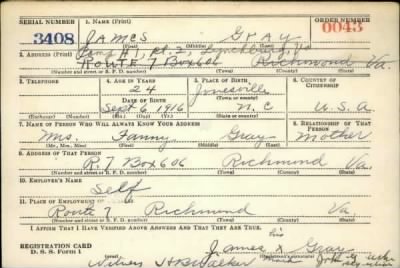 SERIAL NUMBER 1. NAME (Print) ORDER NUMBER
3408 JAMES GRAY 0043
(First) (Middle) (Last)
2. ADDRESS (Print)
Route 7 Box 606 Richmond Va.
(Number and street or R. F. D. number) (Town) (County) (State)
3. TELEPHONE 4. AGE IN YEARS 5. PLACE OF BIRTH 6. COUNTRY OF CITIZENSHIP
24 Jonesville
DATE OF BIRTH (Town or county)
Sept 6, 1916 N. C. U. S. A.
(Exchange) (Number) (Mo.) (Day) (Yr.) (State or country)
7. NAME OF PERSON WHO WILL ALWAYS KNOW YOUR ADDRESS 8. RELATIONSHIP OF THAT PERSON
Mrs. Fanny Gray Mother
(Mr., Mrs., Miss) (First) (Middle) (Last)
9. ADDRESS OF THAT PERSON
R. 7 Box 606 Richmond Va.
(Number and street or R. F. D. number) (Town) (County) (State)
10. EMPLOYER'S NAME
Self
11. PLACE OF EMPLOYMENT
Route Richmond Va
(Number and street or R. F. D. number) (Town) (County) (State)
I AFFIRM THAT I HAVE VERIFIED ABOVE ANSWERS AND THAT THEY ARE TRUE.
his
REGISTRATION CARD James X Gray
D. S. S. Form 1 Witness Walker mark